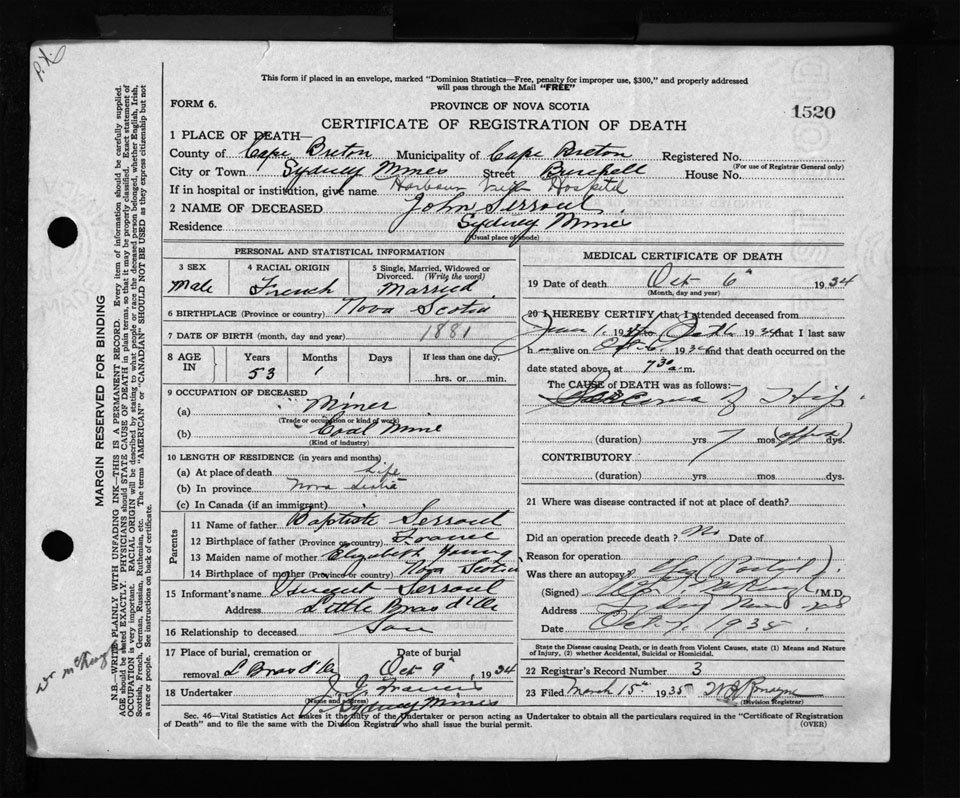 P.X.
This form if placed in an envelope, marked "Dominion Statistics—Free, penalty for improper use, $300," and properly addressed
will pass through the Mail "FREE"
FORM 6.
PROVINCE OF NOVA SCOTIA
1520
CERTIFICATE OF REGISTRATION OF DEATH
1 PLACE OF DEATH—
County of Cape Breton Municipality of Cape Breton Registered No.
(For use of Registrar General only)
City or Town Sydney Mines Street Burchell House No.
If in hospital or institution, give name Harbour View Hospital
2 NAME OF DECEASED John Serroul
Residence Sydney Mines
(Usual place of abode)
PERSONAL AND STATISTICAL INFORMATION
3 SEX 4 RACIAL ORIGIN 5 Single, Married, Widowed or
Divorced. (Write the word)
Male French Married
6 BIRTHPLACE (Province or country) Nova Scotia
7 DATE OF BIRTH (month, day and year) 1881
8 AGE IN Years Months Days If less than one day,
53 1 hrs. or min.
9 OCCUPATION OF DECEASED
(a) Miner
(Trade or occupation or kind of work)
(b) Coal Mine
(Kind of industry)
10 LENGTH OF RESIDENCE (in years and months)
(a) At place of death life
(b) In province Nova Scotia
(c) In Canada (if an immigrant)
Parents
11 Name of father Baptiste Serroul
12 Birthplace of father (Province or country) France
13 Maiden name of mother Elizabeth Young
14 Birthplace of mother (Province or country) Nova Scotia
15 Informant's name Vincent Serroul
Address Little Bras d'Or
16 Relationship to deceased Son
17 Place of burial, cremation or Date of burial
removal L Bras d'Or Oct 9th, 1934
18 Undertaker J. J. Francis
(Name and address)
Sydney Mines
MEDICAL CERTIFICATE OF DEATH
19 Date of death Oct 6th 1934
(Month, day and year)
20 I HEREBY CERTIFY that I attended deceased from
June 1, 1934 to Death 1934 that I last saw
h alive on Oct 6, 1934 and that death occurred on the
date stated above, at 7 30 a.m.
The CAUSE of DEATH was as follows:—
Sarcoma of Hip
(duration) yrs. 7 mos. (approx) dys.
CONTRIBUTORY
(duration) yrs. mos. dys.
21 Where was disease contracted if not at place of death?
Did an operation precede death? No Date of
Reason for operation
Was there an autopsy? Yes (Partial)
(Signed) M.D.
Address Sydney Mines N.S.
Date Oct. 7, 1935
State the Disease causing Death, or in death from Violent Causes, state (1) Means and Nature
of Injury, (2) whether Accidental, Suicidal or Homicidal.
22 Registrar's Record Number 3
23 Filed March 15th 1935
(Division Registrar)
Sec. 46—Vital Statistics Act makes it the duty of the Undertaker or person acting as Undertaker to obtain all the particulars required in the "Certificate of Registration
of Death" and to file the same with the Division Registrar who shall issue the burial permit. (OVER)
MARGIN RESERVED FOR BINDING
N.B.—WRITE PLAINLY WITH UNFADING INK—THIS IS A PERMANENT RECORD. Every item of information should be carefully supplied.
AGE should be stated EXACTLY. PHYSICIANS should STATE CAUSE OF DEATH in plain terms, so that it may be properly classified. Exact statement of
OCCUPATION is very important. RACIAL ORIGIN will be described by stating to what people or race the deceased person belonged, whether English, Irish,
Scottish, French, German, Russian, Ruthenian, etc. The terms "AMERICAN" or "CANADIAN" SHOULD NOT BE USED as they express citizenship but not
a race or people. See instructions on back of certificate.